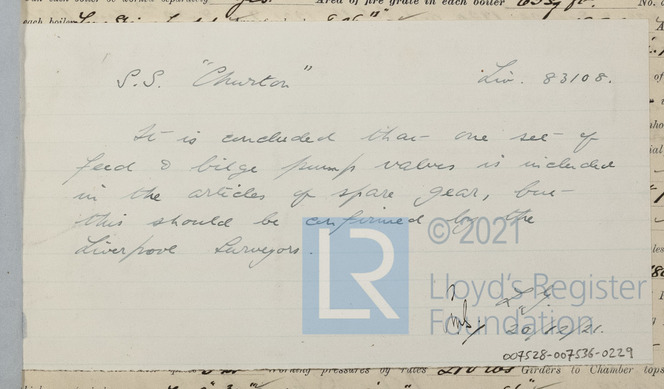 each boiler
Area of fire grate in each boiler
No. of
S.S. "Churton" Liv. 83108.
It is concluded that one set of
feed & bilge pump valves is included
in the articles of spare gear, but
this should be confirmed by the
Liverpool Surveyors.
LR © 2021
Lloyd's Register
Foundation
20/12/21.
007528-007536-0229
Working pressures by rules
Girders to Chamber tops